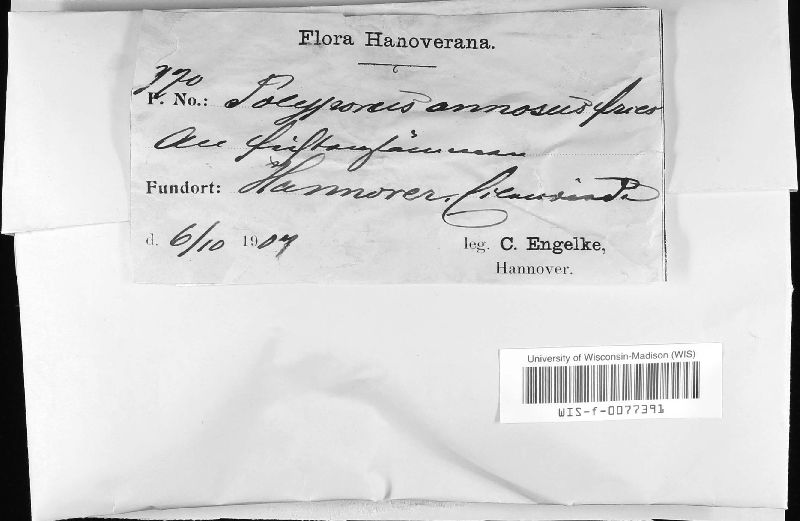 Flora Hanoverana.
990
P. No.: Polyporus annosus Fries
An Fichtenstämmen
Fundort: Hannover. Eilenriede
d. 6/10 1907
leg. C. Engelke,
Hannover.
University of Wisconsin-Madison (WIS)
WIS-f-0077391